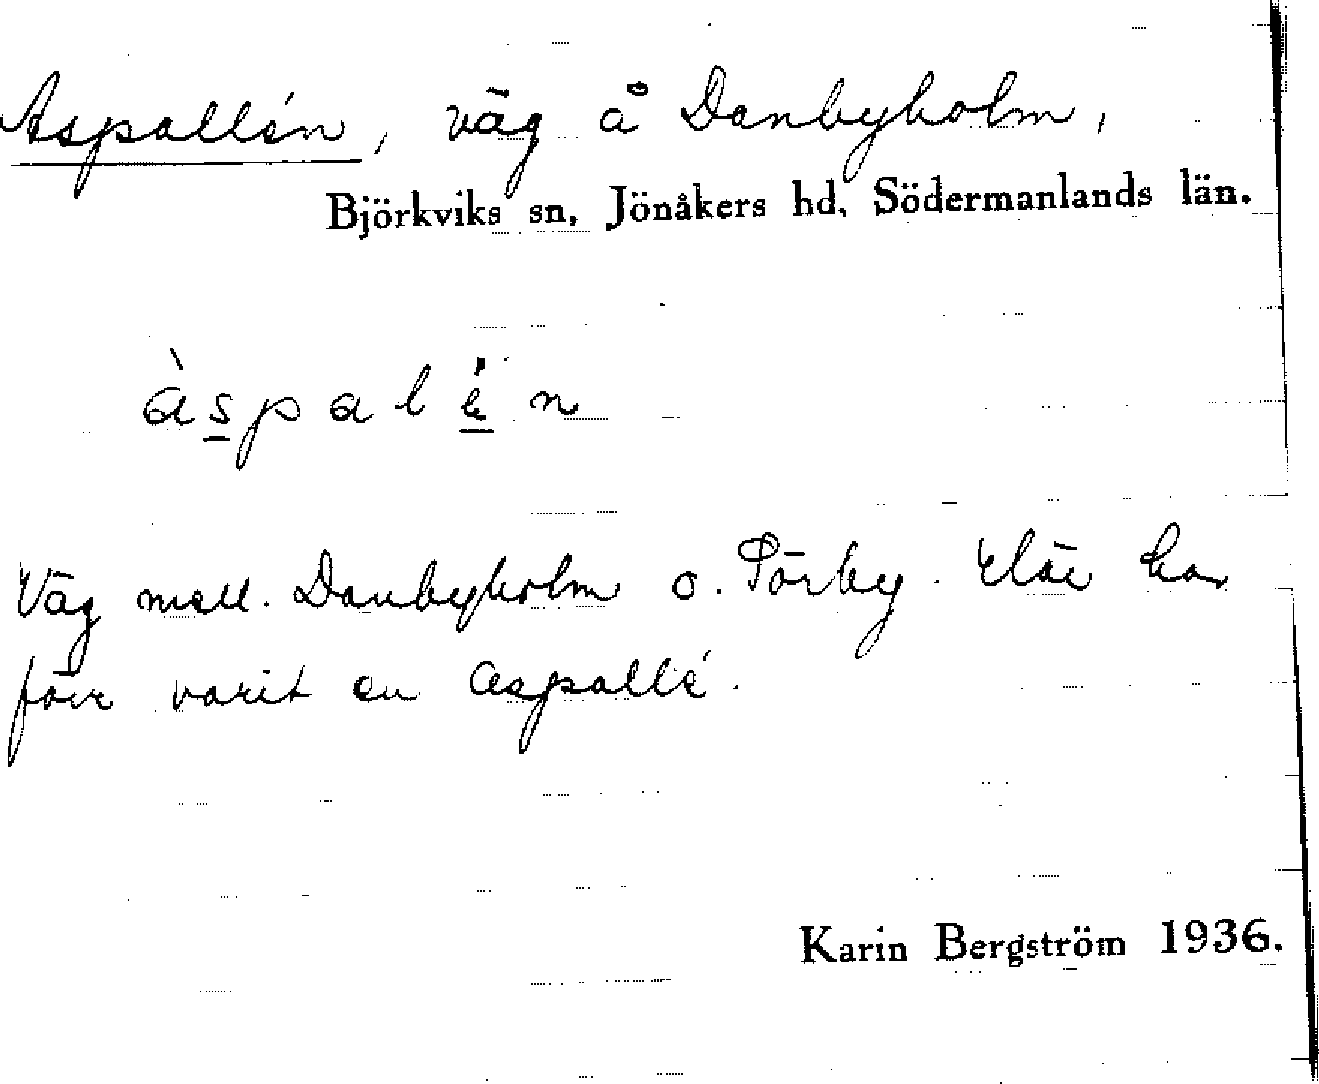 Aspallén, väg å Danbyholm,
Björkviks sn, Jönåkers hd, Södermanlands län.
àspalé̱n
Väg mell. Danbyholm o. Pörby. Där har
förr varit en aspallé.
Karin Bergström 1936.